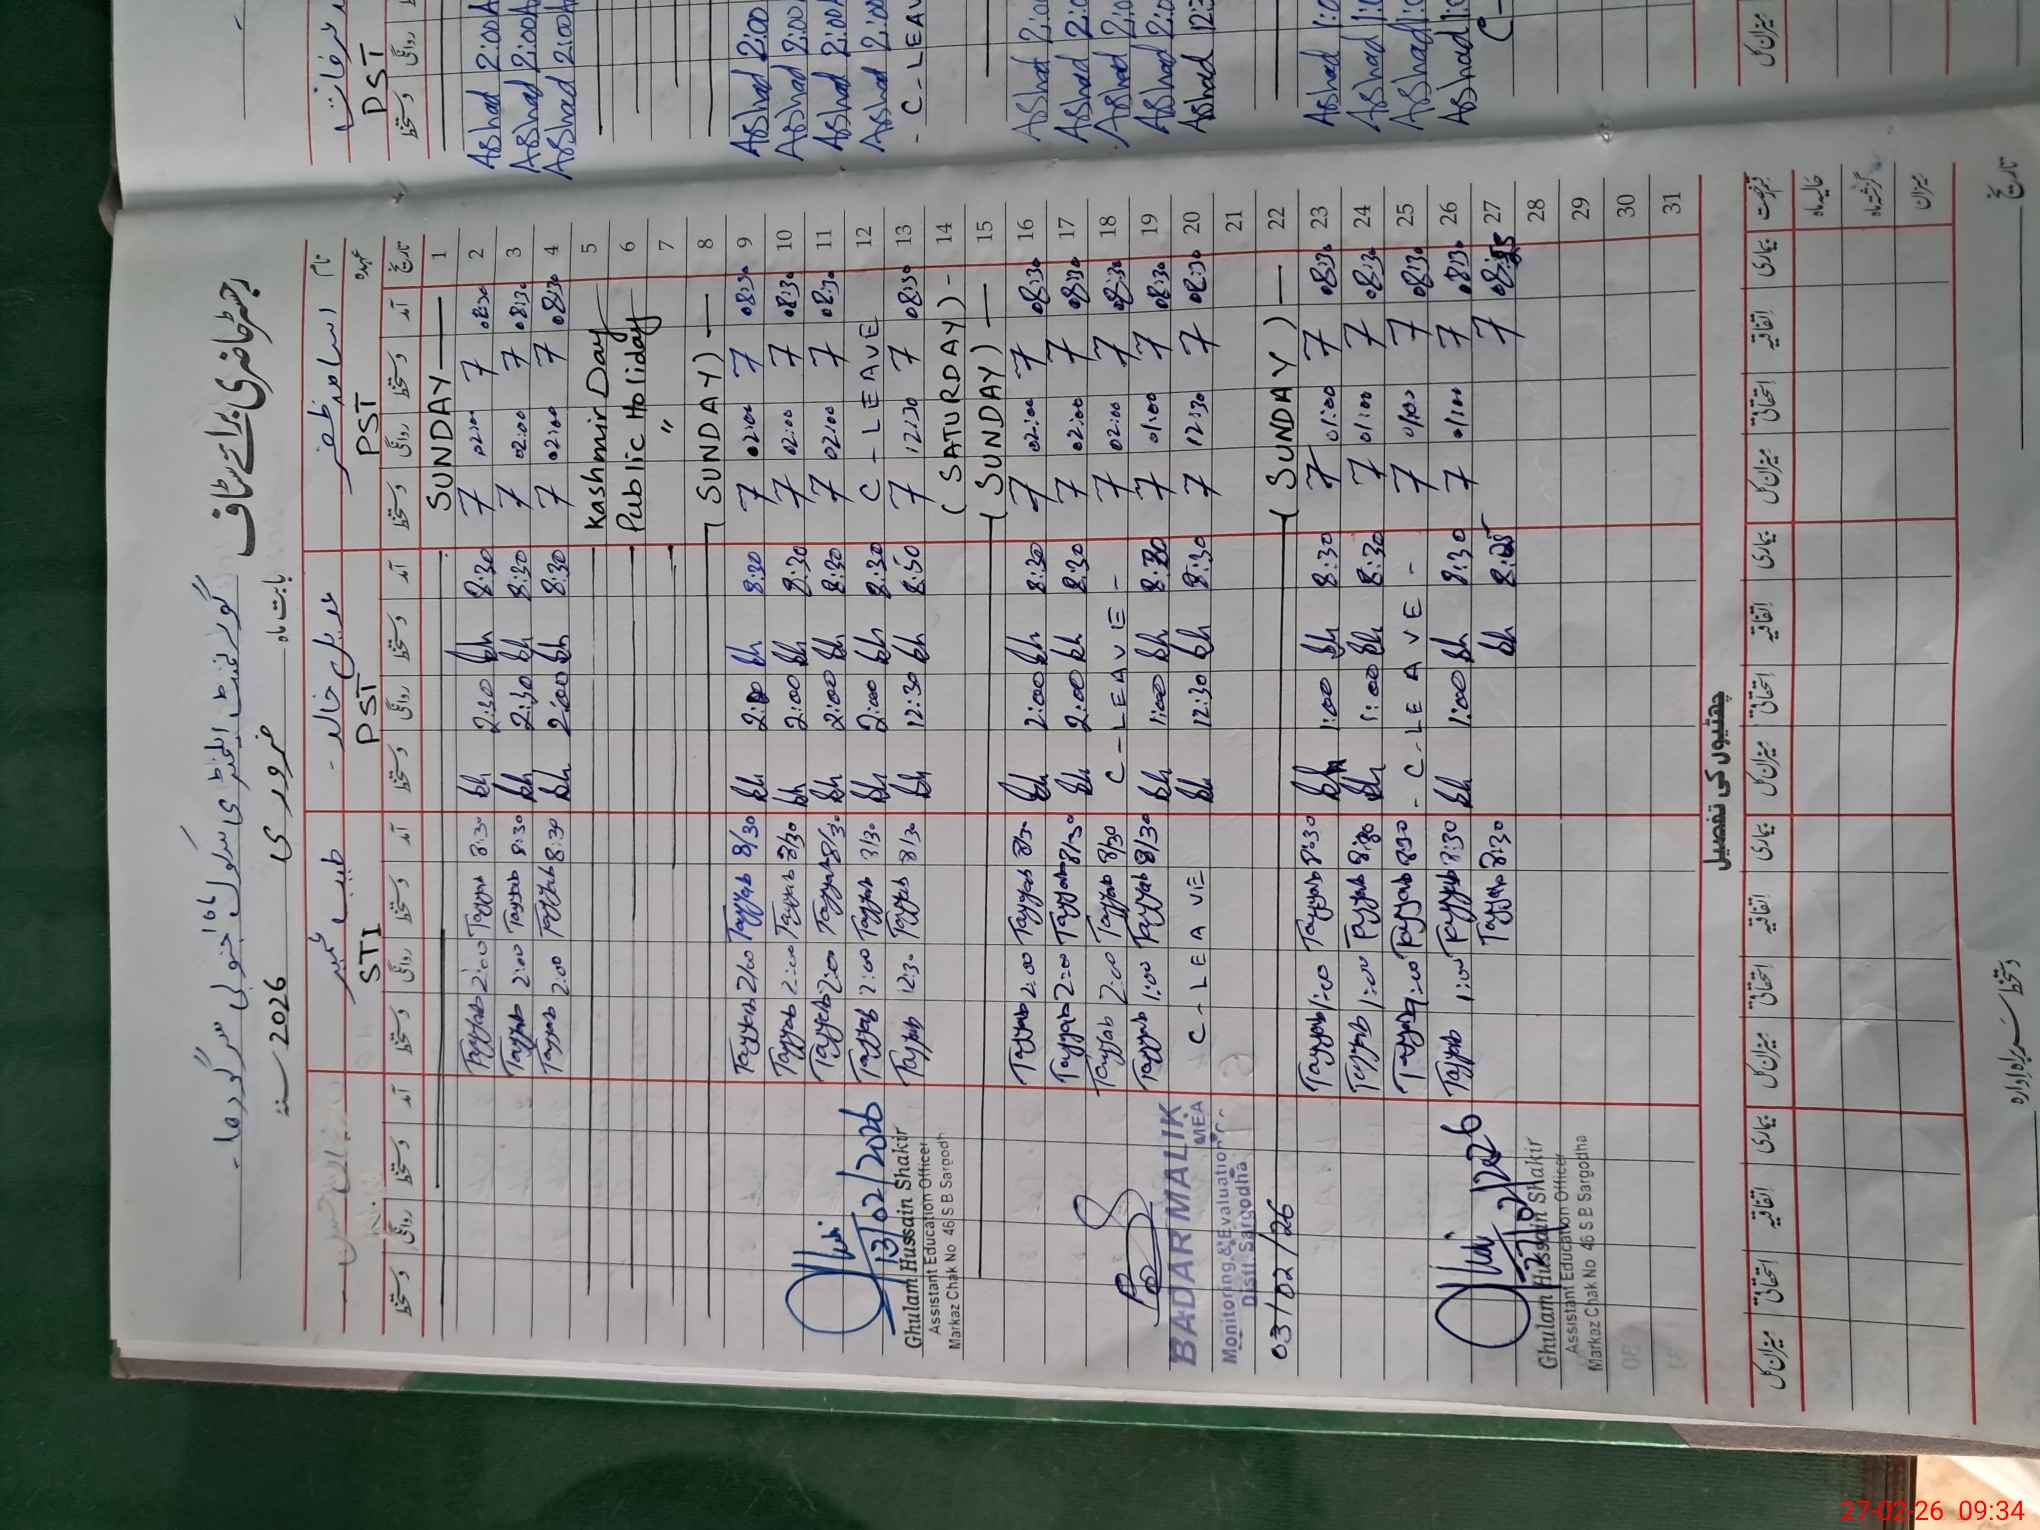 رجسٹر حاضری برائے سٹاف گورنمنٹ ایلیمنٹری سکول
بابت ماہ فروری سنہ 2026
نام
عہدہ PST PST STI
تاریخ آمد دستخط روانگی دستخط آمد دستخط روانگی دستخط آمد دستخط روانگی دستخط آمد دستخط روانگی دستخط
1 SUNDAY
2 08:30 7 02:00 7 8:30 2:30 8:30 Tayyab 2:00 Tayyab
3 08:30 7 02:00 7 8:30 2:30 8:30 Tayyab 2:00 Tayyab
4 08:30 7 02:00 7 8:30 2:00 8:30 Tayyab 2:00 Tayyab
5 Kashmir Day
6 Public Holiday
7 "
8 (SUNDAY)
9 08:30 7 02:00 7 8:30 2:00 8/30 Tayyab 2:00 Tayyab
10 08:30 7 02:00 7 8:30 2:00 8/30 Tayyab 2:00 Tayyab
11 08:30 7 02:00 7 8:30 2:00 8/30 Tayyab 2:00 Tayyab
12 C-LEAVE 8:30 2:00 8/30 Tayyab 2:00 Tayyab
13 08:30 7 12:30 7 8:50 12:30 8/30 Tayyab 12:30 Tayyab
14 (SATURDAY)
15 (SUNDAY)
16 08:30 7 02:00 7 8:30 2:00 8/30 Tayyab 2:00 Tayyab
17 08:30 7 02:00 7 8:30 2:00 8/30 Tayyab 2:00 Tayyab
18 08:30 7 02:00 7 C-LEAVE- 8/30 Tayyab 2:00 Tayyab
19 08:30 7 01:00 7 8:30 1:00 8/30 Tayyab 1:00 Tayyab
20 08:30 7 12:30 7 8:30 12:30 C-LEAVE
21
22 (SUNDAY)
23 08:30 7 01:00 7 8:30 1:00 8:30 Tayyab 1:00 Tayyab
24 08:30 7 01:00 7 8:30 1:00 8:30 Tayyab 1:00 Tayyab
25 08:30 7 01:00 7 -C-LEAVE- 8:30 Tayyab 1:00 Tayyab
26 08:30 7 01:00 7 8:30 1:00 8:30 Tayyab 1:00 Tayyab
27 08:25 7 8:25 8:30 Tayyab
28
29
30
31
13/02/2026
Ghulam Hussain Shakir
Assistant Education Officer
Markaz Chak No 46 S B Sargodh
BADAR MALIK
MEA
Monitoring & Evaluation
Distt. Sargodha
03/02/26
27/02/2026
Ghulam Hussain Shakir
Assistant Education Officer
Markaz Chak No 46 S B Sargodha
چھٹیوں کی تفصیل
بیماری اتفاقیہ استحقاقی میزان کل بیماری اتفاقیہ استحقاقی میزان کل بیماری اتفاقیہ استحقاقی میزان کل بیماری اتفاقیہ استحقاقی میزان کل
حالیہ ماہ
گزشتہ ماہ
میزان
تاریخ
دستخط سربراہ ادارہ
PST
دستخط روانگی
Ashad 2:00
Ashad 2:00
Ashad 2:00
Ashad 2:00
Ashad 2:00
Ashad 2:00
Ashad 2:00
-C-LEAV
Ashad 2:0
Ashad 2:0
Ashad 2:0
Ashad 2:0
Ashad 12:
Ashad 1:0
Ashad 1:0
Ashad 1:0
Ashad 1:0
میزان کل
27-02-26 09:34